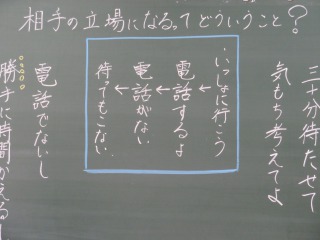 相手の立場になるってどういうこと?
三十分待たせて
気もち考えてよ
いっしょに行こう
←電話するよ
←電話がない
←待てもこない
電話でないし
勝手に時間かえる